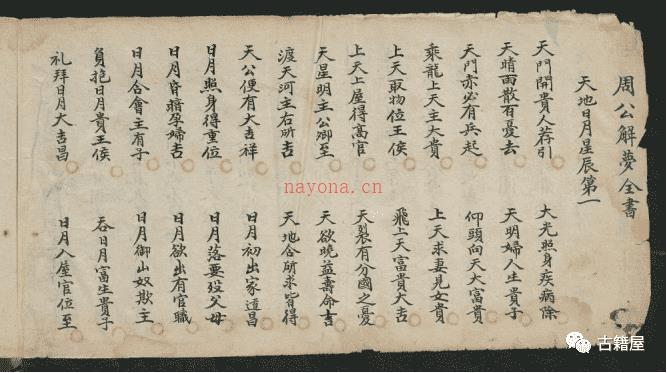 周公解夢全書
天地日月星辰第一
天門開貴人荐引 大光照身疾病除
天晴雨散百憂去 天明婦人生貴子
天門赤必有兵起 仰頭向天大富貴
乘龍上天主大貴 上天求妻兒女貴
上天取物位王侯 飛上天富貴大吉
上天上屋得高官 天裂有分國之憂
天星明主公卿至 天欲曉益壽命吉
渡天河主有所吉 天地合所求皆得
天公便有大吉祥 日月初出家道昌
日月照身得重位 日月落要歿父母
日月穿暗孕婦吉 日月欲出有官職
日月合會主有子 日月御山奴欺主
負抱日月貴王侯 吞日月富生貴子
礼拜日月大吉昌 日月入屋官位至
nayona.cn
古籍屋